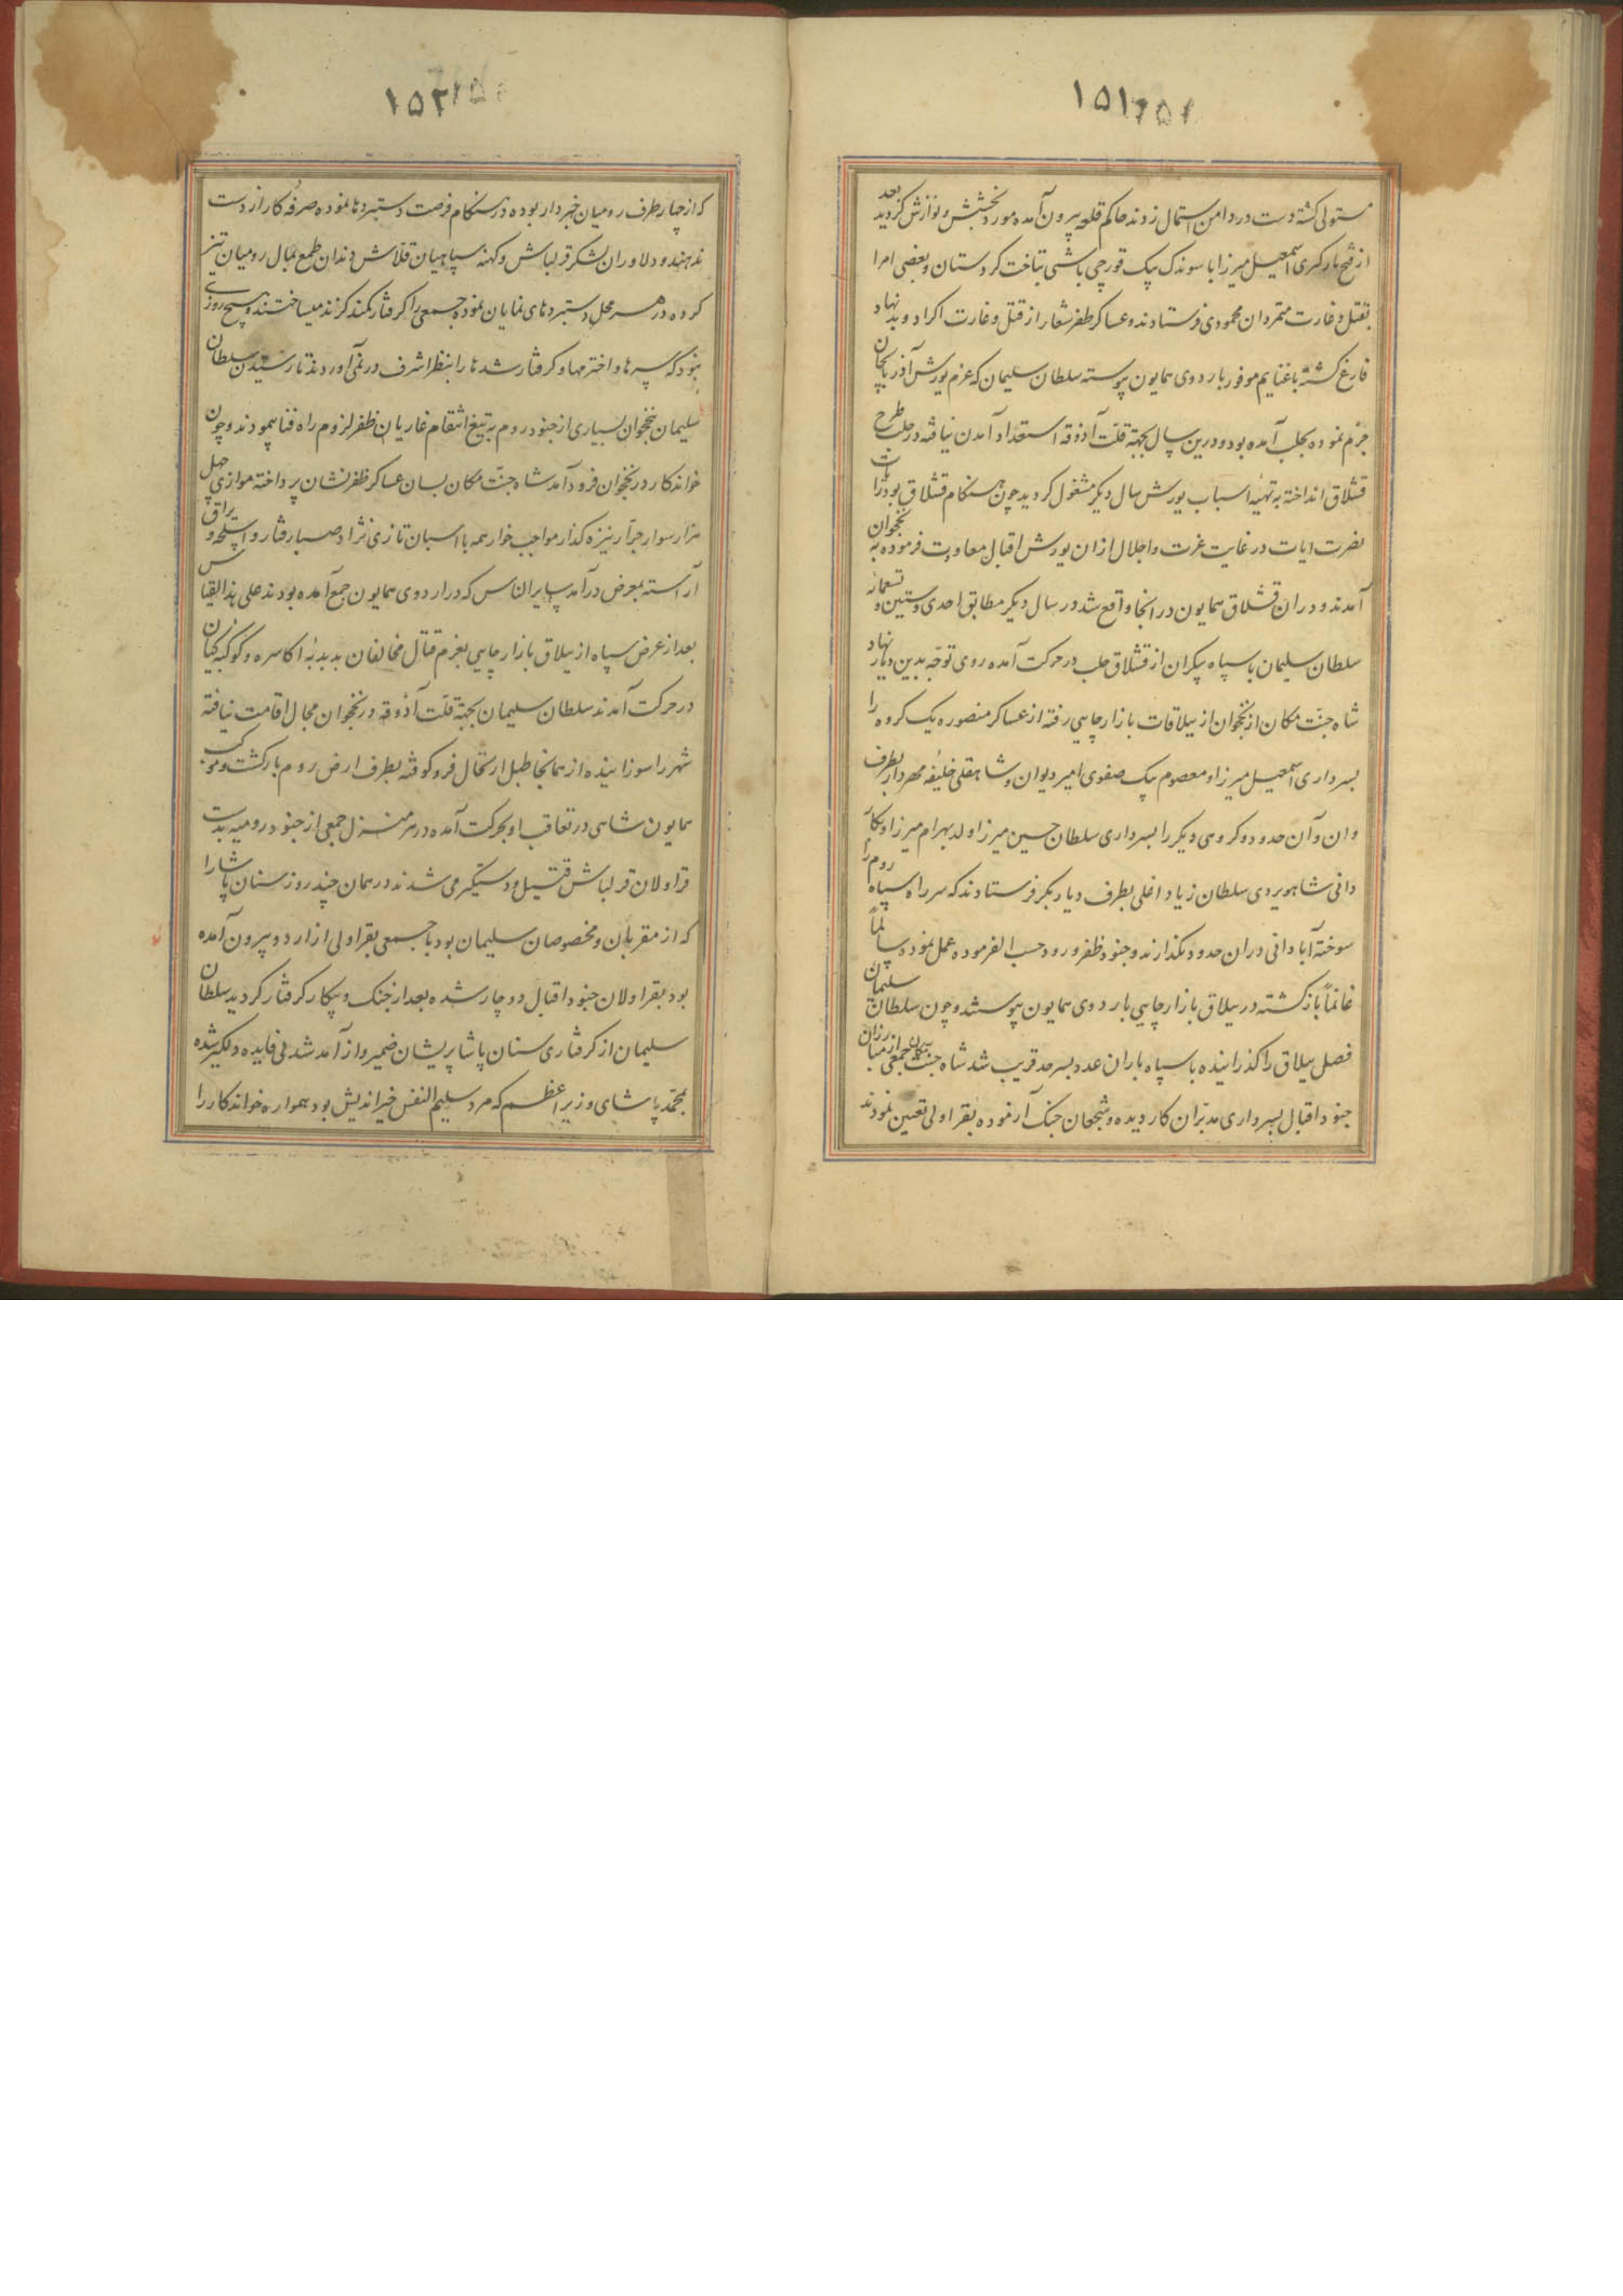 ۱۵۱
مستولی کشته دست در دامن استمال زدند حاکم قلعه بیرون آمده مورد بخشش و نوازش کردید بعد
از فتح بارکیری اسمعیل میرزا با سوندک بیک قورچی باشی بتاخت کردستان و بعضی امرا
بقتل و غارت متمردان محمودی فرستادند و عساکر ظفر شعار از قتل و غارت اکراد و بد نهاد
فارغ کشته با غنایم موفور باردوی همایون پیوسته سلطان سلیمان که عزم یورش آذربایجان
جزم نموده بحلب آمده بود و درین سال بجهة قلت آذوقه استعداد آمدن نیافته در حلب طرح
قشلاق انداخته به تهیه اسباب یورش سال دیکر مشغول کردید چون هنکام قشلاق بود رایات
نصرت ایات در غایت عزت و اجلال ازان یورش اقبال معاودت فرموده به نخجوان
آمدند و دران قشلاق همایون در انجا واقع شد در سال دیکر مطابق احدی و ستین و تسعمائه
سلطان سلیمان با سپاه بیکران از قشلاق حلب در حرکت آمده روی توجه بدین دیار نهاد
شاه جنت مکان از نخجوان از ییلاقات بازار چایی رفته از عساکر منصوره یک کروه را
بسرداری اسمعیل میرزا و معصوم بیک صفوی امیر دیوان و شاهقلی خلیفه مهردار بطرف
وان و آن حدود و کروهی دیکر را بسرداری سلطان حسین میرزا ولد بهرام میرزا و کار
دانی شاهویردی سلطان زیاد اغلی بطرف دیاربکر فرستادند که سر راه سپاه روم را
سوخته آبادانی دران حدود نکذارند و جنود ظفر ورود حسب الفرموده عمل نموده سالماً
غانماً بازکشته در ییلاق بازار چایی باردوی همایون پیوستند و چون سلطان سلیمان
فصل ییلاق را کذرانیده با سپاه باران عدد بسرحد قریب شد شاه جنت مکان جمعی از مبارزان
جنود اقبال بسرداری مدبران کار دیده و شجعان جنک آزموده بقراولی تعیین نمودند
۱۵۲
که از چهار طرف رومیان خبردار بوده در هنکام فرصت دستبردها نموده صرفه کار از دست
ندهند و دلاوران لشکر قزلباش و کهنه سپاهیان قلاش دندان طمع بمال رومیان تیز
کرده در هر محل دستبردهای نمایان نموده جمعی را کرفتار کمند کزند میساختند و هیچ روزی
نبود که سرها و اخترمها و کرفتار شدها را بنظر اشرف در نمی آوردند تا رسیدن سلطان
سلیمان بنخجوان بسیاری از جنود روم به تیغ انتقام غازیان ظفر لزوم راه فنا پیمودند و چون
خواندکار در نخجوان فرود آمد شاه جنت مکان بسان عساکر ظفر نشان پرداخته موازی چهل
هزار سوار جرار نیزه کذار مواجب خوار همه با اسبان تازی نژاد صبا رفتار و اسلحه و یراق
آراسته بمعرض درآمد سایر ان ناس که در اردوی همایون جمع آمده بودند علی هذا القیاس
بعد از عرض سپاه از ییلاق بازار چایی بعزم قتال مخالفان بدبدبه اکاسره و کوکبه کیان
در حرکت آمدند سلطان سلیمان بجهة قلت آذوقه در نخجوان مجال اقامت نیافته
شهر را سوزانیده از همانجا طبل ارتحال فرو کوفته بطرف ارض روم بازکشت و موکب
همایون شاهی در تعاقب او بحرکت آمده در هر منزل جمعی از جنود رومیه بدست
قراولان قزلباش قتیل و دستکیر می شدند در همان چند روز سنان پاشا را
که از مقربان و مخصوصان سلیمان بود با جمعی بقراولی از اردو بیرون آمده
بود بقراولان جنود اقبال دوچار شده بعد از جنک و پیکار کرفتار کردید سلطان
سلیمان از کرفتاری سنان پاشا پریشان ضمیر و از آمد شد بی فایده دلکیر شده
محمد پاشای وزیر اعظم که مرد سلیم النفس خیر اندیش بود همواره خواندکار را